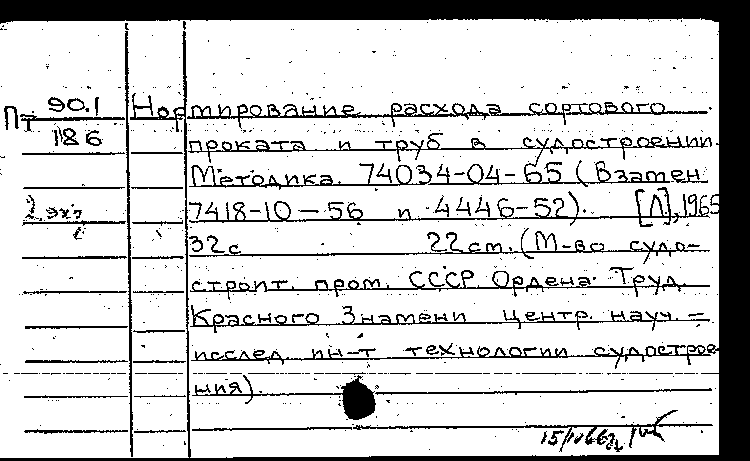 Пт 90.1 Нормирование расхода сортового
186 проката и труб в судостроении.
Методика. 74034-04-65 (Взамен
2 экз 7418-10-56 и 4446-52). [Л], 1965
32с 22 см. (М-во судо-
строит. пром. СССР. Ордена Труд.
Красного Знамени центр. науч.-
исслед. ин-т технологии судострое-
ния).